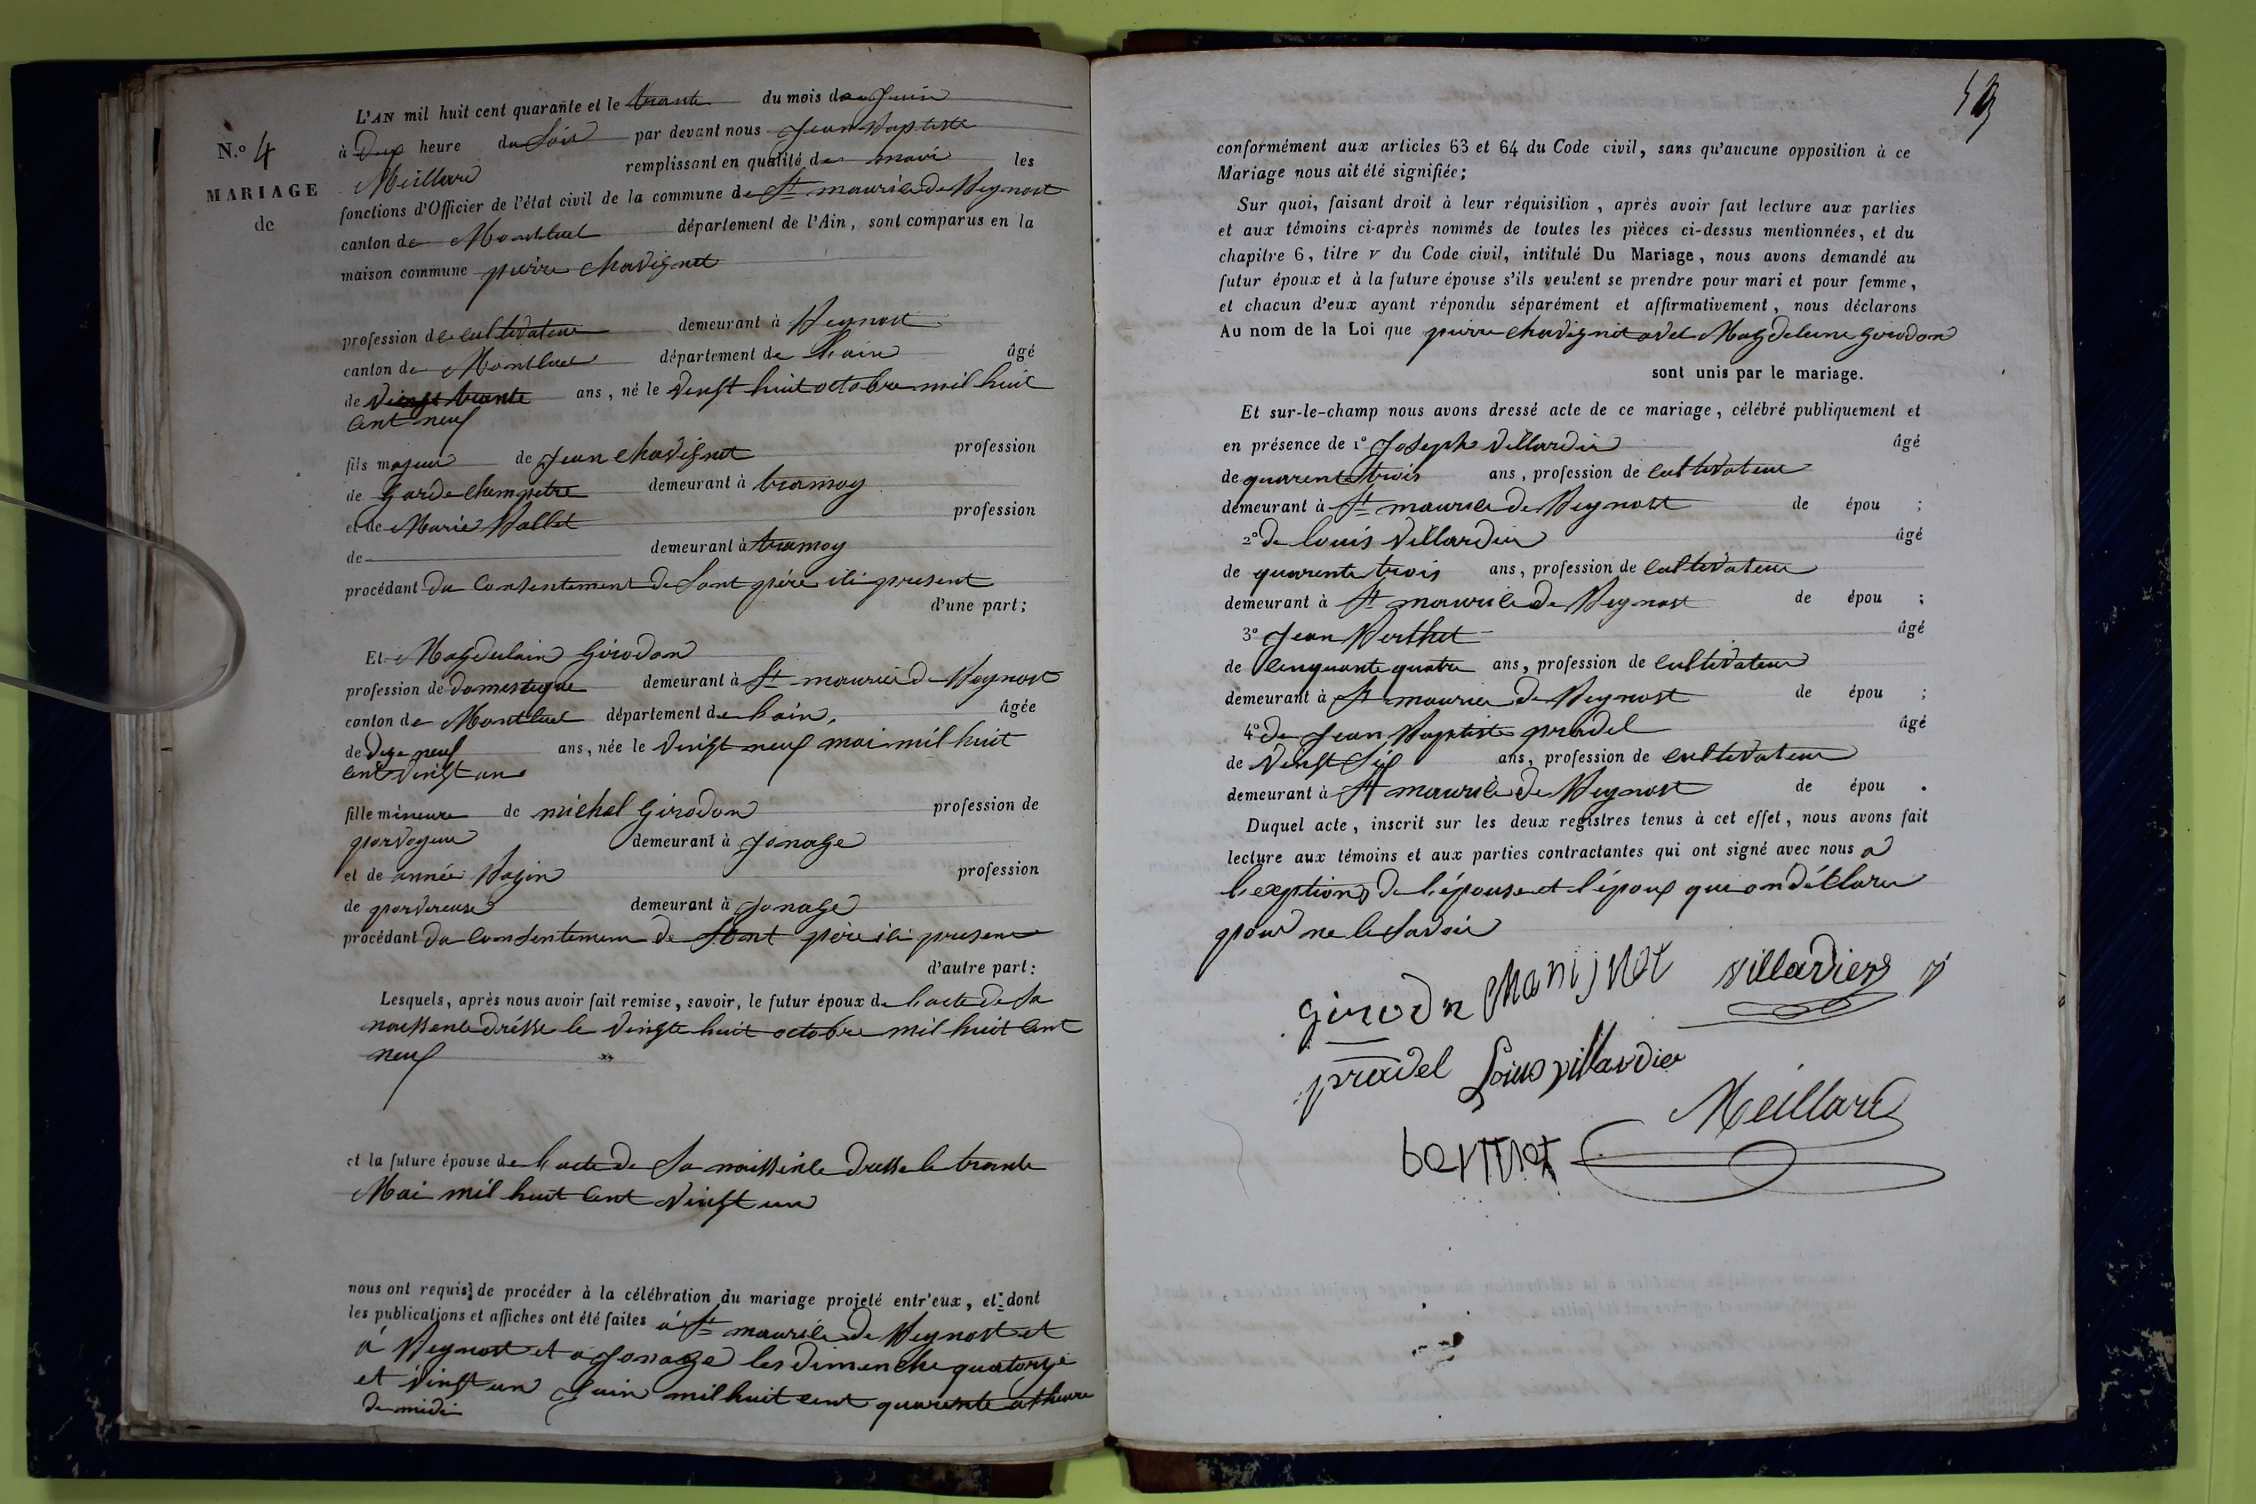 N.º 4
MARIAGE
de
L'AN mil huit cent quarante et le trante du mois de Juin
à deux heure du Soir par devant nous Jean Baptiste
Meillard remplissant en qualité de maire les
fonctions d'Officier de l'état civil de la commune de St maurice de Beynost
canton de Montluel département de l'Ain, sont comparus en la
maison commune pierre Chavignet
profession de cultivateur demeurant à Beynost
canton de Montluel département de l'ain âgé
de vingt trante ans, né le vingt huit octobre mil huit
cent neuf
fils majeur de Jean Chavignet profession
de garde Champetre demeurant à tramoy
et de Marie Vallet profession
de demeurant à tramoy
procédant du Consentement de Sont père ici present
d'une part;
Et Magdelain Girodon
profession de domestique demeurant à St maurice de Beynost
canton de Montluel département de l'ain, âgée
de dize neuf ans, née le vingt neuf mai mil huit
cent vingt un
fille mineure de michel Girodon profession de
porvoyeur demeurant à Jonage
et de année Bagin profession
de porvereuse demeurant à Jonage
procédant du consentement de Sont père ici present
d'autre part:
Lesquels, après nous avoir fait remise, savoir, le futur époux de l'acte de Sa
naissente drésse le vingte huit octobre mil huit cent
neuf
et la future épouse de l'acte de Sa naissènce dresse le trante
Mai mil huit cent vingt un
nous ont requis de procéder à la célébration du mariage projeté entr'eux, et dont
les publications et affiches ont été faites à St maurice de Beynost et
à Beynost et a Jonage les dimenche quatorze
et vingt un Juin mil huit cent quarente a theure
de midi
conformément aux articles 63 et 64 du Code civil, sans qu'aucune opposition à ce
Mariage nous ait été signifiée;
Sur quoi, faisant droit à leur réquisition, après avoir fait lecture aux parties
et aux témoins ci-après nommés de toutes les pièces ci-dessus mentionnées, et du
chapitre 6, titre V du Code civil, intitulé Du Mariage, nous avons demandé au
futur époux et à la future épouse s'ils veulent se prendre pour mari et pour femme,
et chacun d'eux ayant répondu séparément et affirmativement, nous déclarons
Au nom de la Loi que pierre chavignet avec Magdeleine Girodon
sont unis par le mariage.
Et sur-le-champ nous avons dressé acte de ce mariage, célébré publiquement et
en présence de 1º Joseph Villardier âgé
de quarente trois ans, profession de cultivateur
demeurant à St maurice de Beynost de épou ;
2º de louis Villardier âgé
de quarente trois ans, profession de cultivateur
demeurant à St maurice de Beynost de épou ;
3º Jean Berthet âgé
de cinquante quatre ans, profession de cultivateur
demeurant à St maurice de Beynost de épou ;
4º de Jean Baptiste pradel âgé
de vingt Six ans, profession de cultivateur
demeurant à St maurice de Beynost de épou .
Duquel acte, inscrit sur les deux registres tenus à cet effet, nous avons fait
lecture aux témoins et aux parties contractantes qui ont signé avec nous a
l'exption de l'épouse et l'époux qui on déclarer
pour ne le Savoir
girodn Chanijnet villardier
pradel Louis villardier
Meillard
berthet